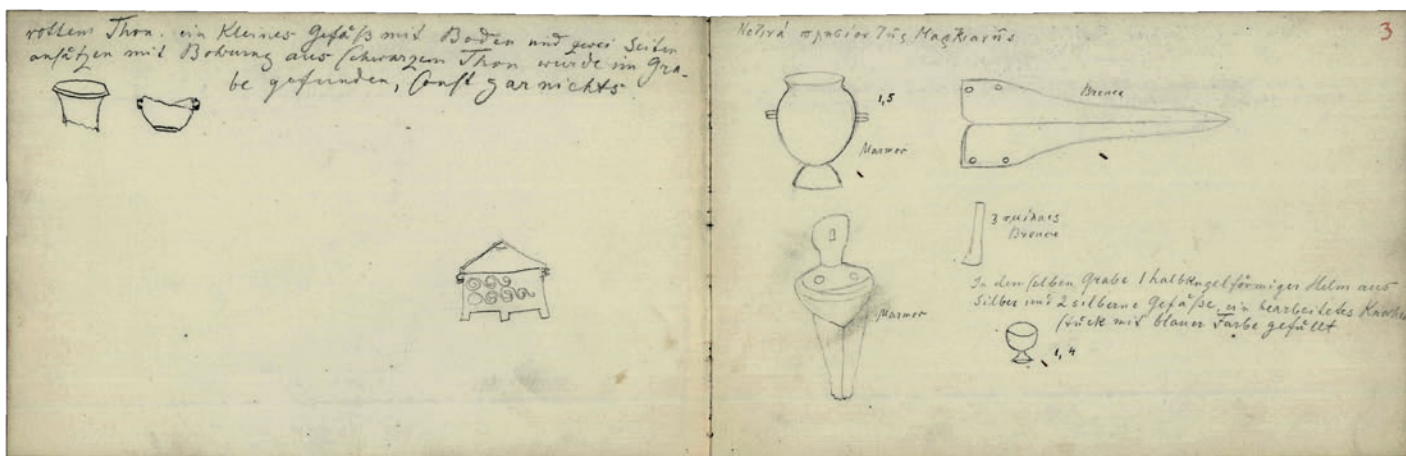 rothem Thon. ein Kleines Gefäß mit Boden und zwei Seiten
ansätzen mit Bohrung aus schwarzem Thon wurde im Gra-
be gefunden, sonst gar nichts
3
πλησίον τῆς
1,5
Marmor
Bronce
3 σμίλαες
Bronce
Marmor
In demselben Grabe 1 halbkugelförmiger Helm aus
Silber und 2 silberne Gefäße, ein bearbeitetes Knochen
stück mit blauer Farbe gefüllt
1,4